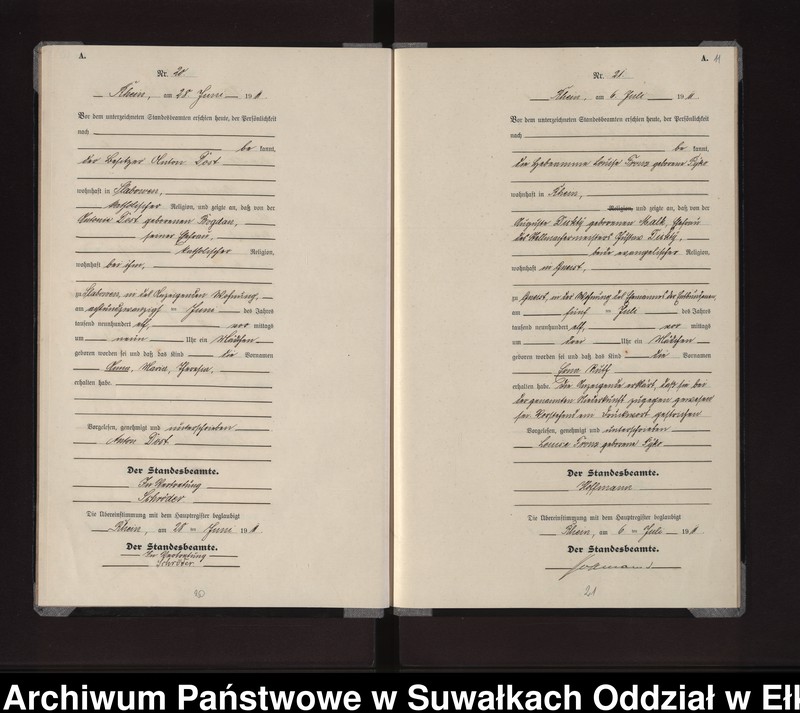 A.
Nr. 20
Rhein, am 28 Juni 1911
Vor dem unterzeichneten Standesbeamten erschien heute, der Persönlichkeit
nach
be kannt,
der Besitzer Anton Dost
wohnhaft in Slabowen,
katholischer Religion, und zeigte an, daß von der
Antonie Dost geborenen Bogdan,
seiner Ehefrau,
katholischer Religion,
wohnhaft bei ihm,
zu Slabowen, in des Anzeigenden Wohnung,
am achtundzwanzig ten Juni des Jahres
tausend neunhundert elf, vor mittags
um neun Uhr ein Mädchen
geboren worden sei und daß das Kind die Vornamen
Anna, Maria, Theresia,
erhalten habe.
Vorgelesen, genehmigt und unterschrieben
Anton Dost
Der Standesbeamte.
In Vertretung
Schröder
Die Übereinstimmung mit dem Hauptregister beglaubigt
Rhein, am 28 ten Juni 1911
Der Standesbeamte.
In Vertretung
Schröder
20
A. 11
Nr. 21
Rhein, am 6. Juli 1911
Vor dem unterzeichneten Standesbeamten erschien heute, der Persönlichkeit
nach
be kannt,
die Hebeamme Louise geborene
wohnhaft in Rhein,
Religion, und zeigte an, daß von der
Auguste geborenen Malk, Ehefrau
des Stellmachermeisters Gustav
beide evangelischer Religion,
wohnhaft in Gneist,
zu Gneist, in der Wohnung des Ehemannes der Entbundenen,
am fünf ten Juli des Jahres
tausend neunhundert elf, vor mittags
um drei Uhr ein Mädchen
geboren worden sei und daß das Kind die Vornamen
Ruth
erhalten habe. Die Anzeigende erklärt, daß sie bei
der genannten Niederkunft zugegen gewesen
sei. Vorstehend ein Druckwort gestrichen
Vorgelesen, genehmigt und unterschrieben
Louise geborene
Der Standesbeamte.
Hoffmann
Die Übereinstimmung mit dem Hauptregister beglaubigt
Rhein, am 6 ten Juli 1911
Der Standesbeamte.
Hoffmann
21
Archiwum Państwowe w Suwałkach Oddział w Ełk